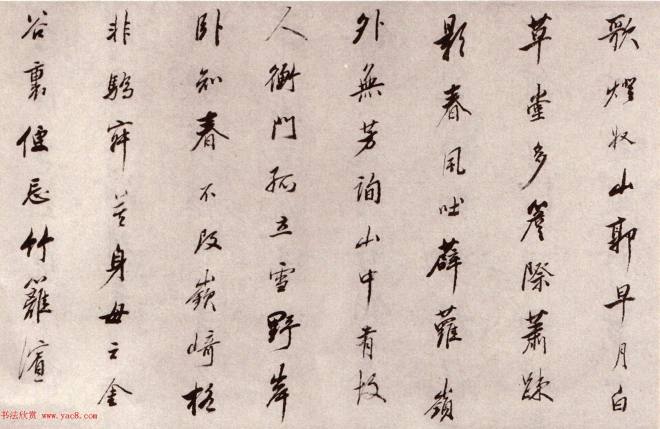 歌燈收山郭早月白
草堂多簷際蕭疎
影春風吐薜蘿嶺
外無芳詢山中有故
人衡門孤立雪野岸
卧知春不改嶔崎格
非驕寂苦身毋言金
谷裏偃蹇竹籬濱
书法欣赏 www.yac8.com